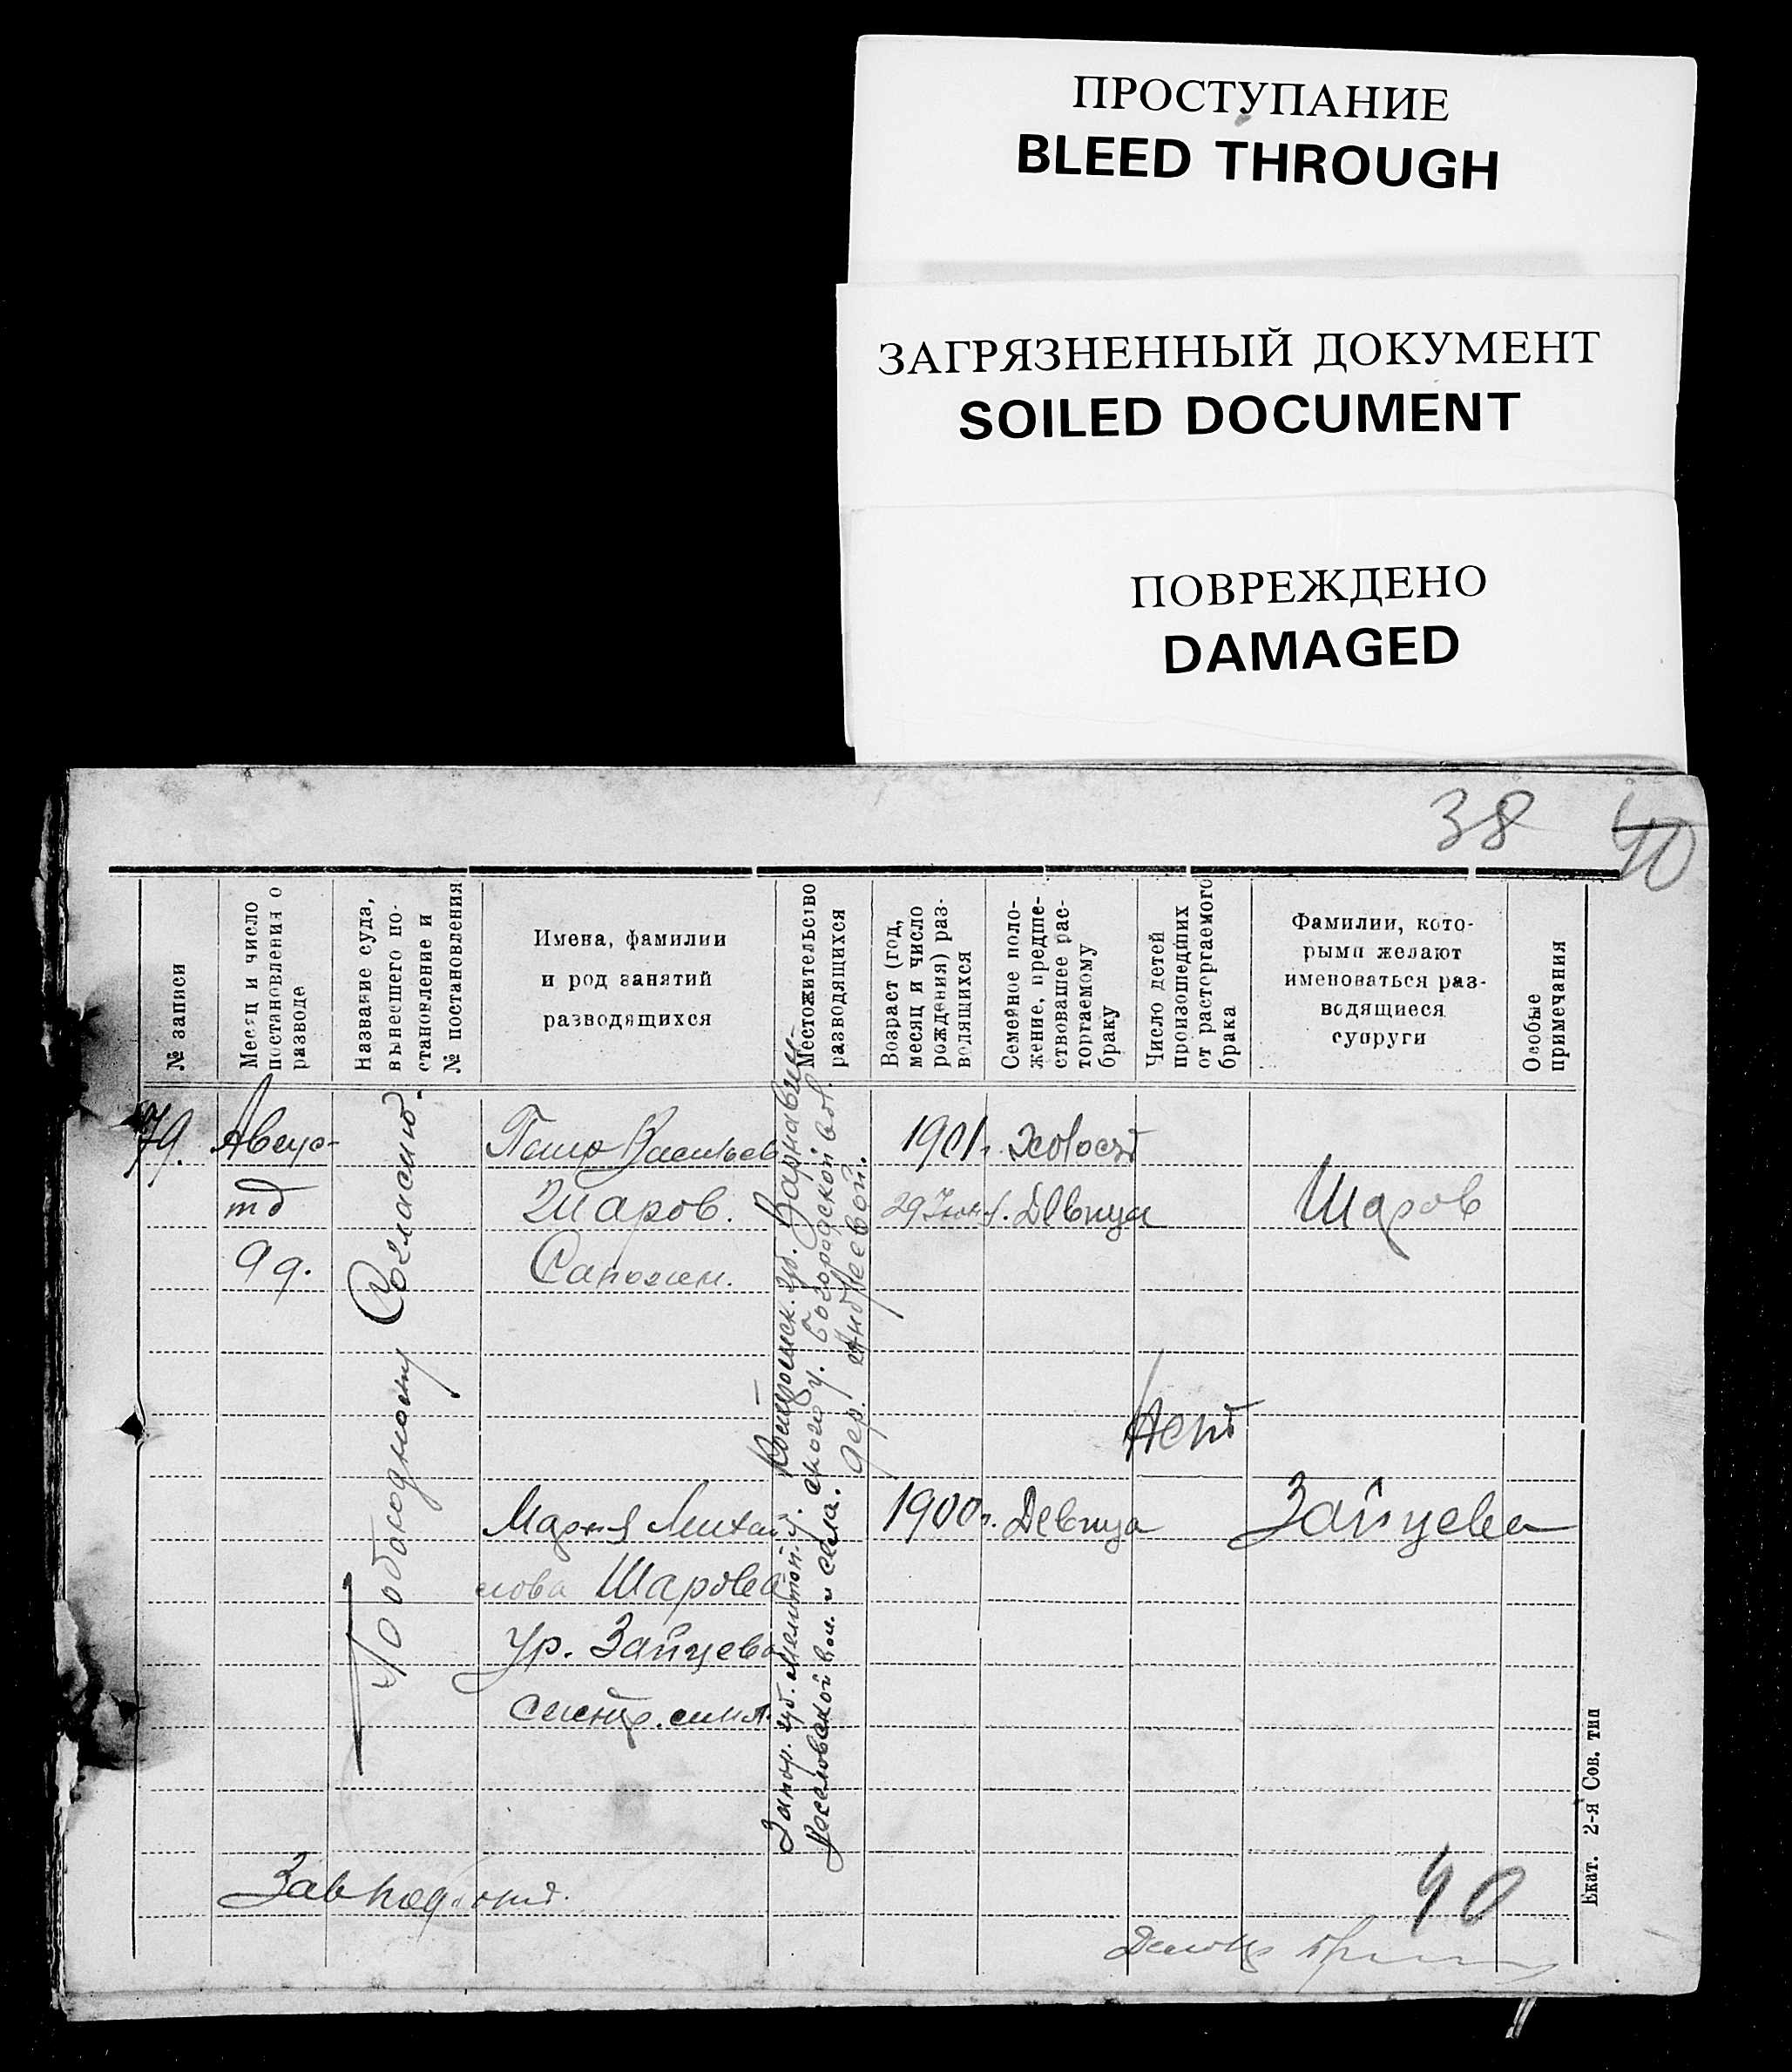 ПРОСТУПАНИЕ
BLEED THROUGH
ЗАГРЯЗНЕННЫЙ ДОКУМЕНТ
SOILED DOCUMENT
ПОВРЕЖДЕНО
DAMAGED
38 40
№ записи
Месяц и число
постановления о
разводе
Название суда,
вынесшего по-
становление и
№ постановления
Имена, фамилии
и род занятий
разводящихся
Местожительство
разводящихся
Возраст (год,
месяц и число
рождения) раз-
водящихся
Семейное поло-
жение, предше-
ствовавшее рас-
торгаемому
браку
Число детей
произошедших
от расторгаемого
брака
Фамилии, кото-
рыми желают
именоваться раз-
водящиеся
супруги
Особые
примечания
79.
Авгус-
та
9 д.
По обоюдному Соглас
Васильев
Шаров.
Сапожн.
Костромск. губ. Варнавин-
ского у. Богородской вол.
дер. Андреевой.
1901 г.
29 Июн
Холост
Девица
Шаров
Нет
Мария Михай
лова Шарова
ур. Зайцева
Запор. губ. Мелитоп. у.
Веселовской вол. и села.
1900 г.
Девица
Зайцева
Зав. под. отд.
40
Екат. 2-я Сов. тип